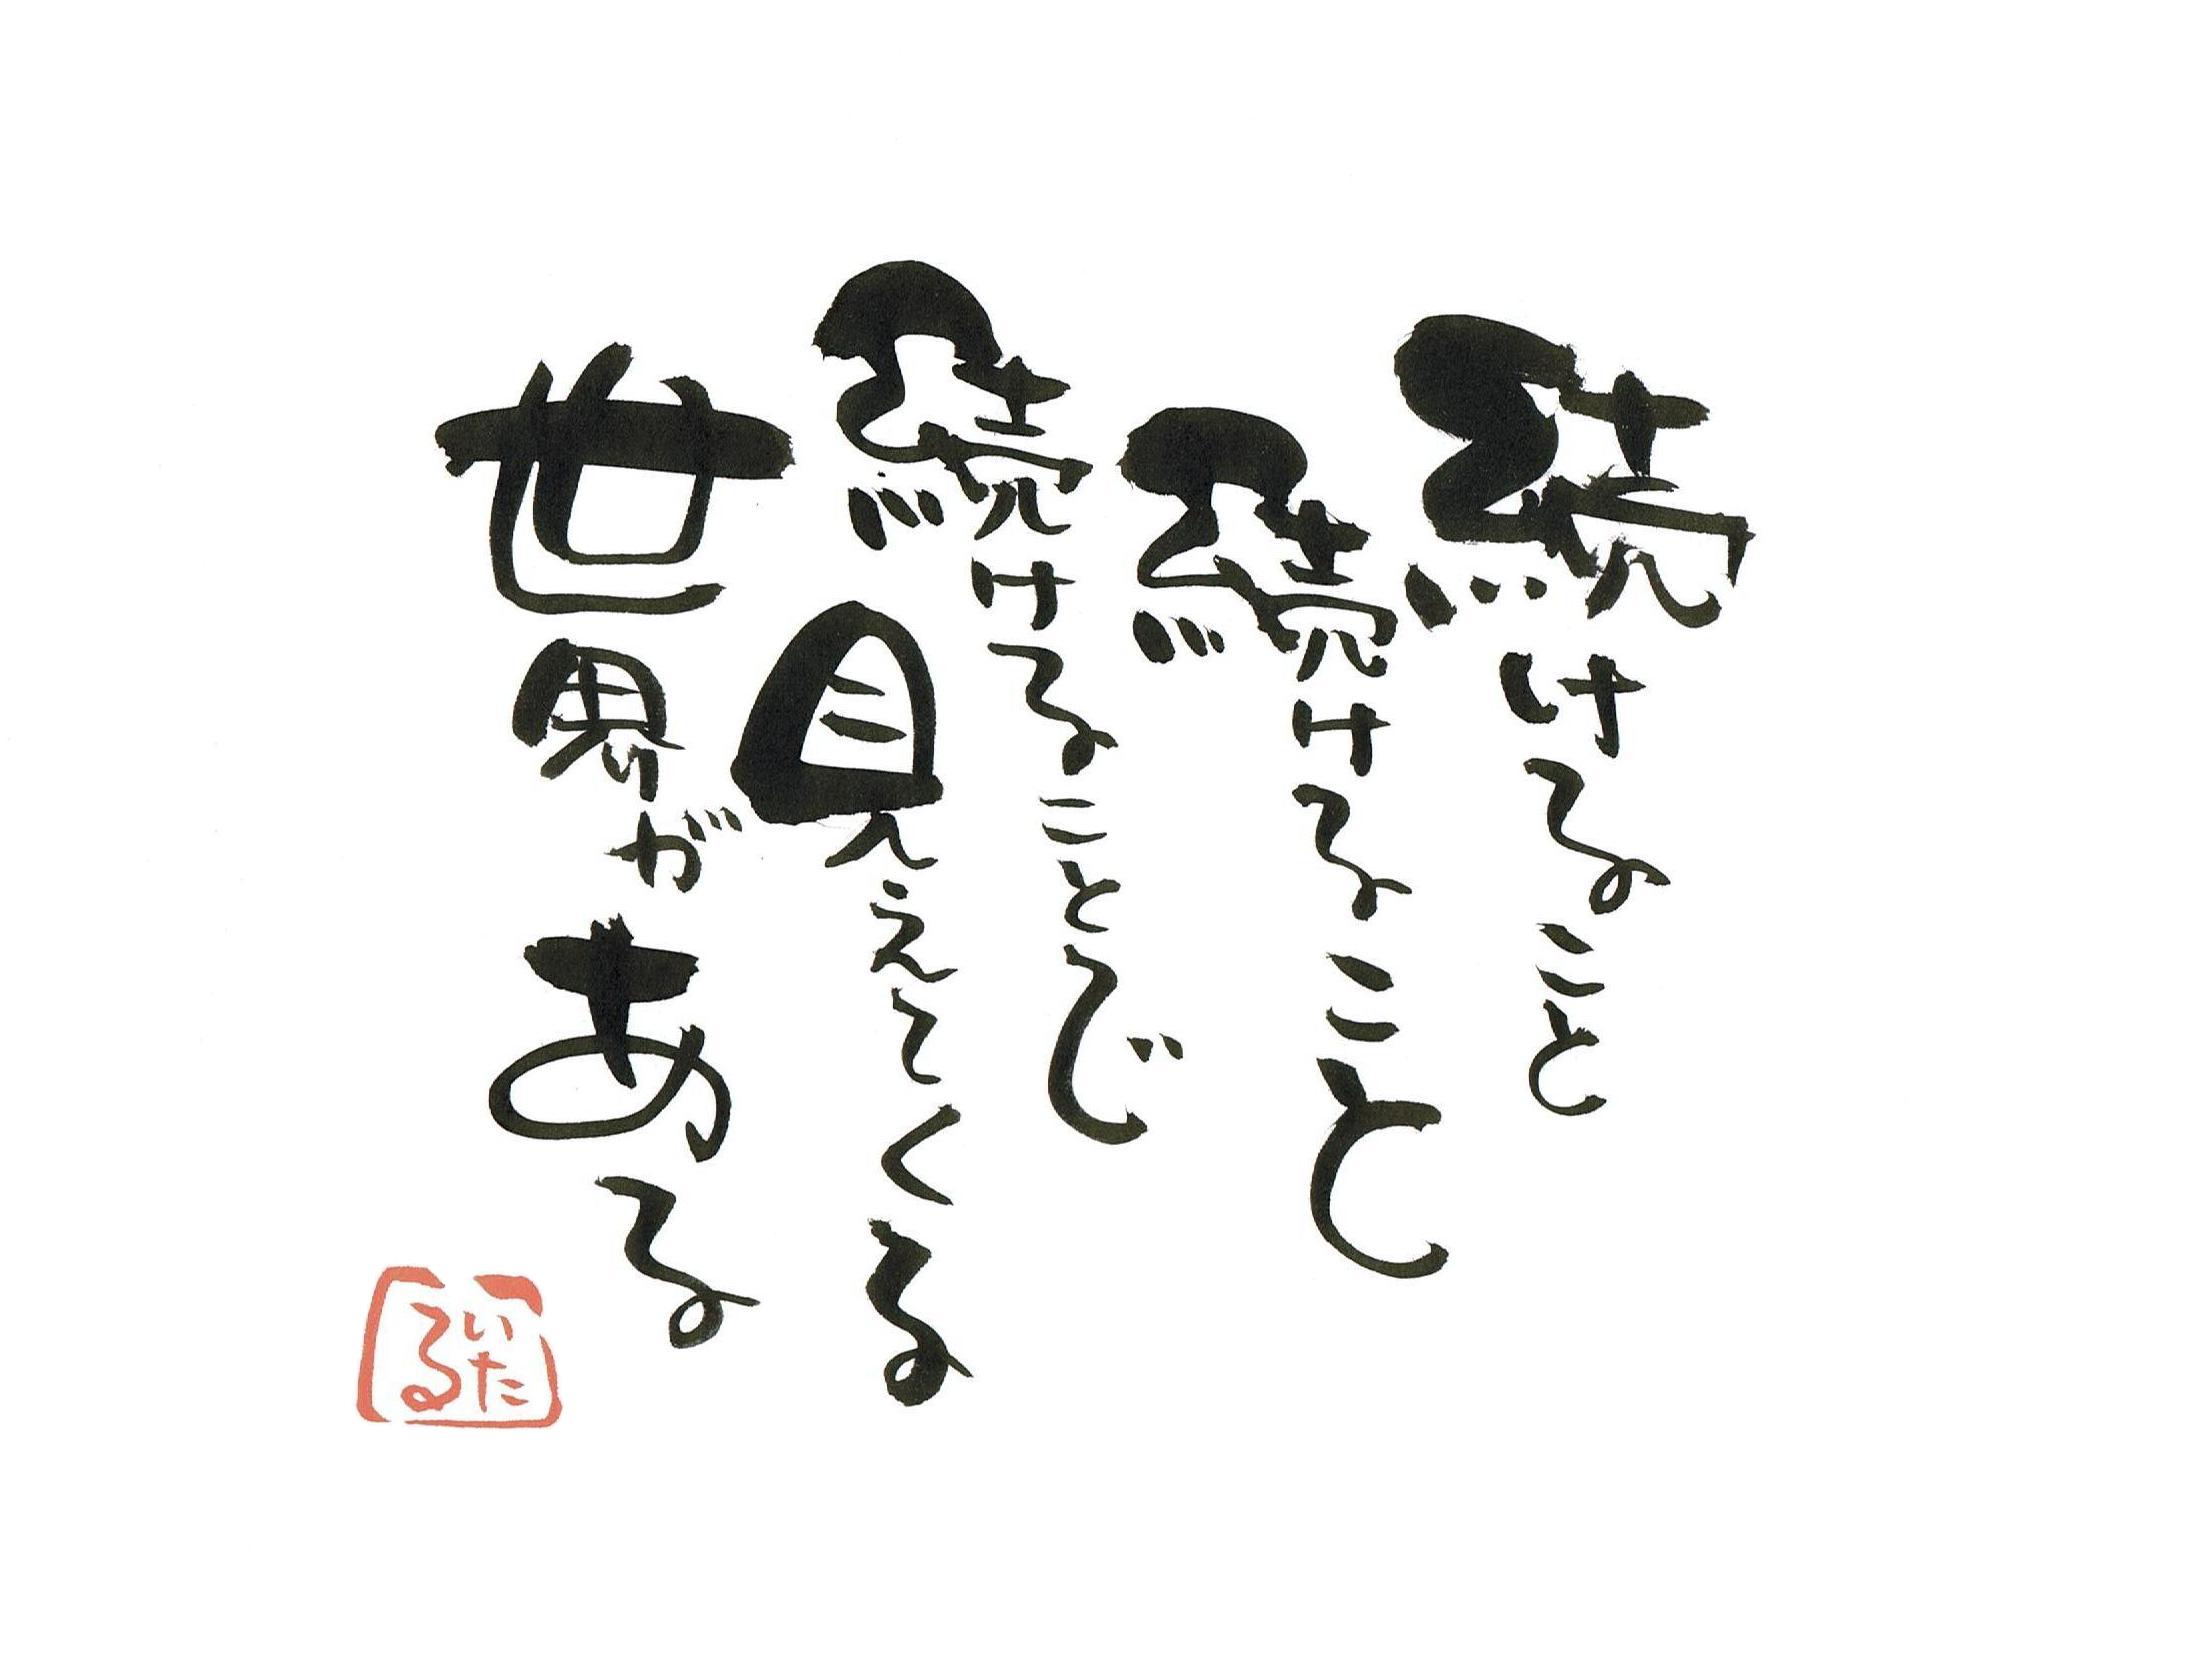 続けること
続けること
続けることで
見えてくる
世界がある
いたる